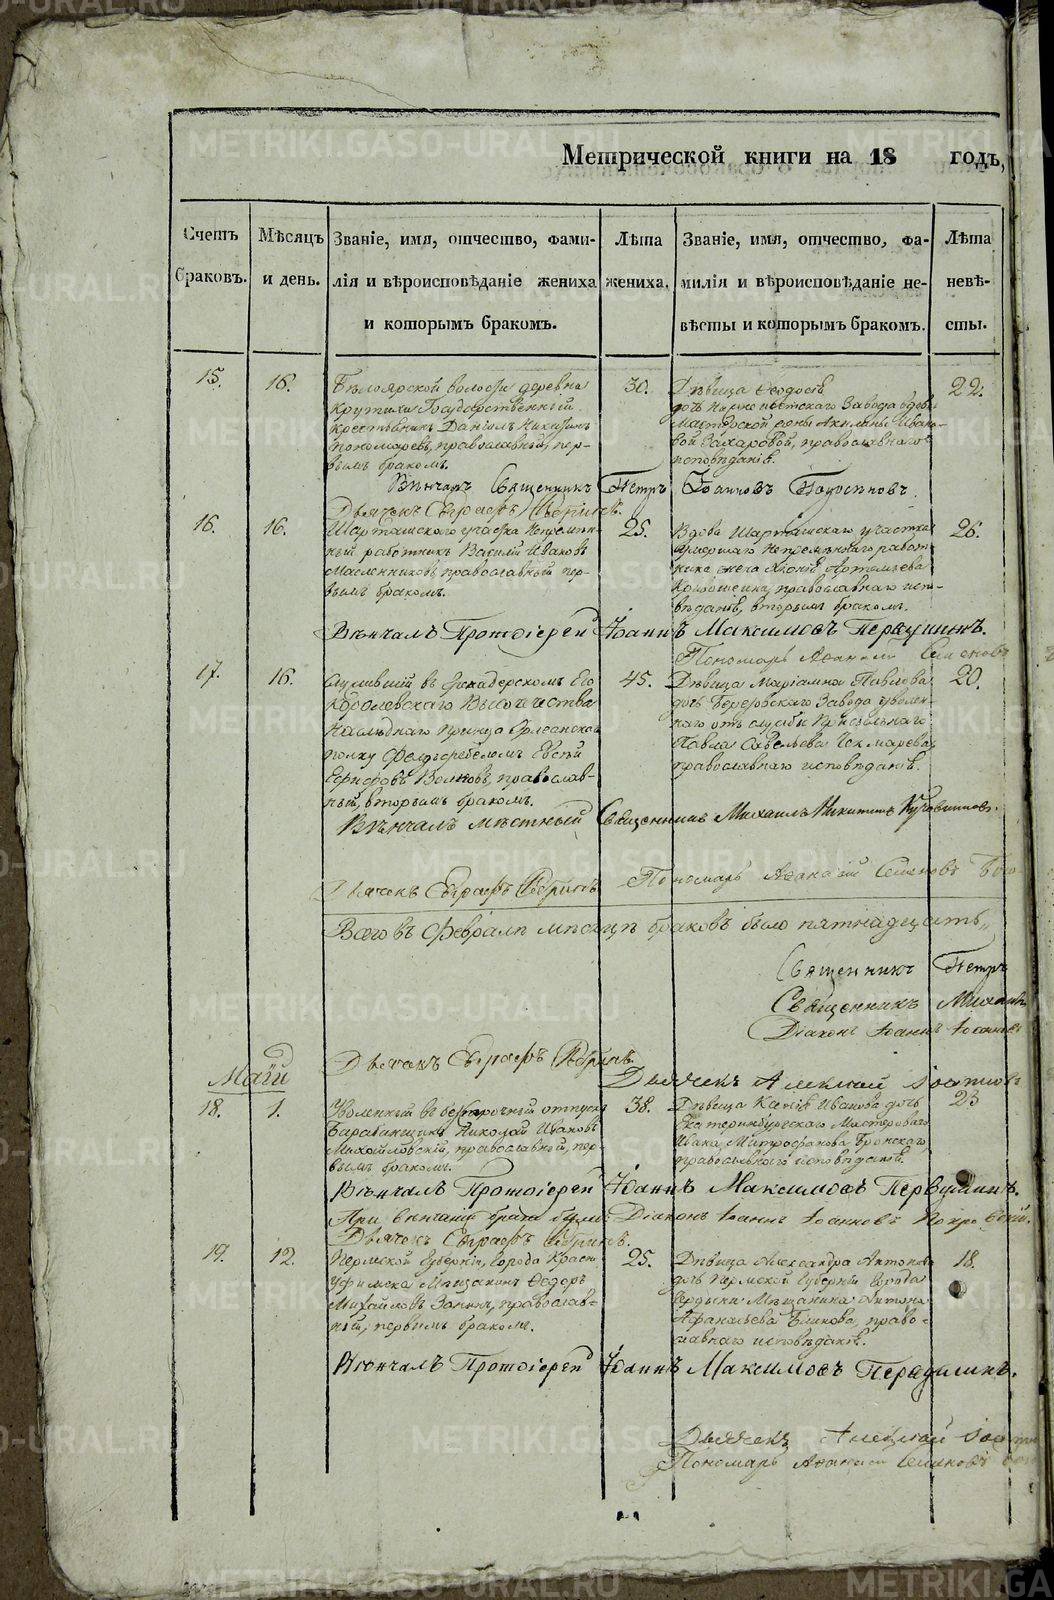 Метрической книги на 18 годъ,
Счетъ браковъ.
Мѣсяцъ и день.
Званіе, имя, отчество, фами-
лія и вѣроисповѣданіе жениха
и которымъ бракомъ.
Лѣта жениха.
Званіе, имя, отчество, фа-
милія и вѣроисповѣданіе не-
вѣсты и которымъ бракомъ.
Лѣта невѣ-
сты.
15.
16.
Бѣлоярской волости деревни
Крутихи Государственный
крестьянинъ Даніилъ Никитинъ
Пономаревъ, православный, пер-
вымъ бракомъ.
30.
Дѣвица Ѳеодосія
Завода вдовы
Мастерской жены Акилины Ивано-
вой Захаровой, православнаго
исповѣданія.
22.
Вѣнчалъ Священникъ Петръ Іоанновъ
Дьячекъ Евграфъ
16.
16.
Шарташскаго участка Непремѣн-
ный работникъ Василій Ивановъ
Масленниковъ, православный, пер-
вымъ бракомъ.
25.
Вдова Шарташскаго участка
умершаго Непремѣннаго работ-
ника жена Артемьева
православнаго испо-
вѣданія, вторымъ бракомъ.
26.
Вѣнчалъ Протоіерей Іоаннъ Максимовъ Первушинъ.
Пономарь Аѳанасій Семеновъ
17.
16.
Служившій въ Его
Королевскаго Высочества
Наслѣднаго Принца Оранскаго
полку Фельдфебелемъ Евсѣй
Волковъ, православ-
ный, вторымъ бракомъ.
45.
Дѣвица Маріамна Павлова
дочь Березовскаго Завода уволен-
наго отъ службы
Павла Савельева Чекмарева,
православнаго исповѣданія.
20.
Вѣнчалъ мѣстный Священникъ Михаилъ Никитинъ
Дьячекъ Евграфъ
Пономарь Аѳанасій Семеновъ
Всего въ Февралѣ мѣсяцѣ браковъ было пятнадцать,,
Священникъ Петръ
Священникъ Михаилъ
Діаконъ Іоаннъ Іоанновъ
Дьячекъ Евграфъ
Дьячекъ Алексѣй
Май
18.
1.
Уволенный въ безсрочный отпускъ
Барабанщикъ Николай Ивановъ
Михайловскій, православный, пер-
вымъ бракомъ.
38.
Дѣвица Ксенія Иванова дочь
Екатеринбургскаго Мастероваго
Ивана Митрофанова Бронскаго,
православнаго исповѣданія.
23
Вѣнчалъ Протоіерей Іоаннъ Максимовъ Первушинъ.
При вѣнчаніи брака были Діаконъ Іоаннъ Іоанновъ Покровскій.
Дьячекъ Евграфъ
19.
12.
Пермской Губерніи, Города Красно-
уфимска Мѣщанинъ Ѳедоръ
Михайловъ Зонинъ, православ-
ный, первымъ бракомъ.
25.
Дѣвица Александра Антонова
дочь Пермской Губерніи Города
Чердыни Мѣщанина Антона
Афанасьева Блинова, право-
славнаго исповѣданія.
18.
Вѣнчалъ Протоіерей Іоаннъ Максимовъ Первушинъ.
Дьячекъ Алексѣй
Пономарь Аѳанасій Семеновъ
METRIKI.GASO-URAL.RU